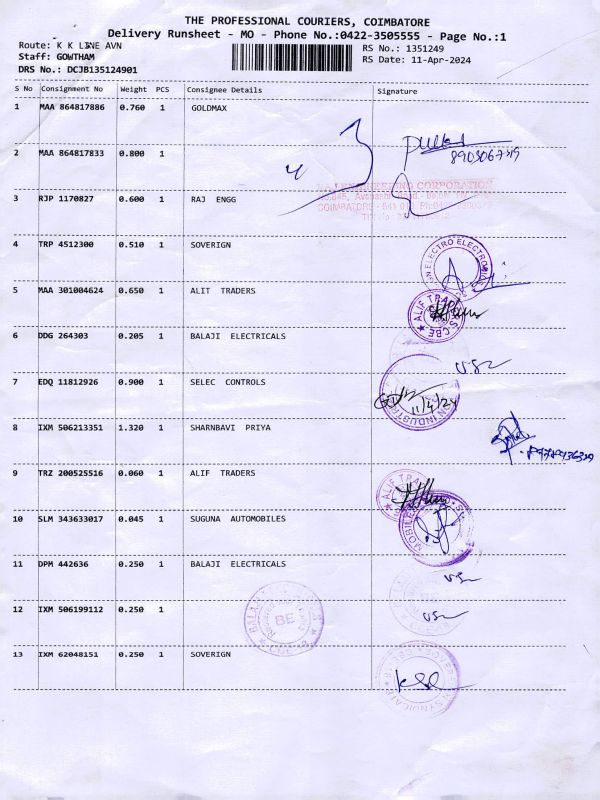 THE PROFESSIONAL COURIERS, COIMBATORE
Delivery Runsheet - MO - Phone No.:0422-3505555 - Page No.:1
Route: K K LINE AVN
RS No.: 1351249
Staff: GOWTHAM
RS Date: 11-Apr-2024
DRS No.: DCJB135124901
S No Consignment No Weight PCS Consignee Details Signature
1 MAA 864817886 0.760 1 GOLDMAX
2 MAA 864817833 0.800 1
3 RJP 1170827 0.600 1 RAJ ENGG
4 TRP 4512300 0.510 1 SOVERIGN
5 MAA 301004624 0.650 1 ALIT TRADERS
6 DDG 264303 0.205 1 BALAJI ELECTRICALS
7 EDQ 11812926 0.900 1 SELEC CONTROLS
11/4/24
8 IXM 506213351 1.320 1 SHARNBAVI PRIYA
9 TRZ 200525516 0.060 1 ALIF TRADERS
10 SLM 343633017 0.045 1 SUGUNA AUTOMOBILES
11 DPM 442636 0.250 1 BALAJI ELECTRICALS
12 IXM 506199112 0.250 1
13 IXM 62048151 0.250 1 SOVERIGN